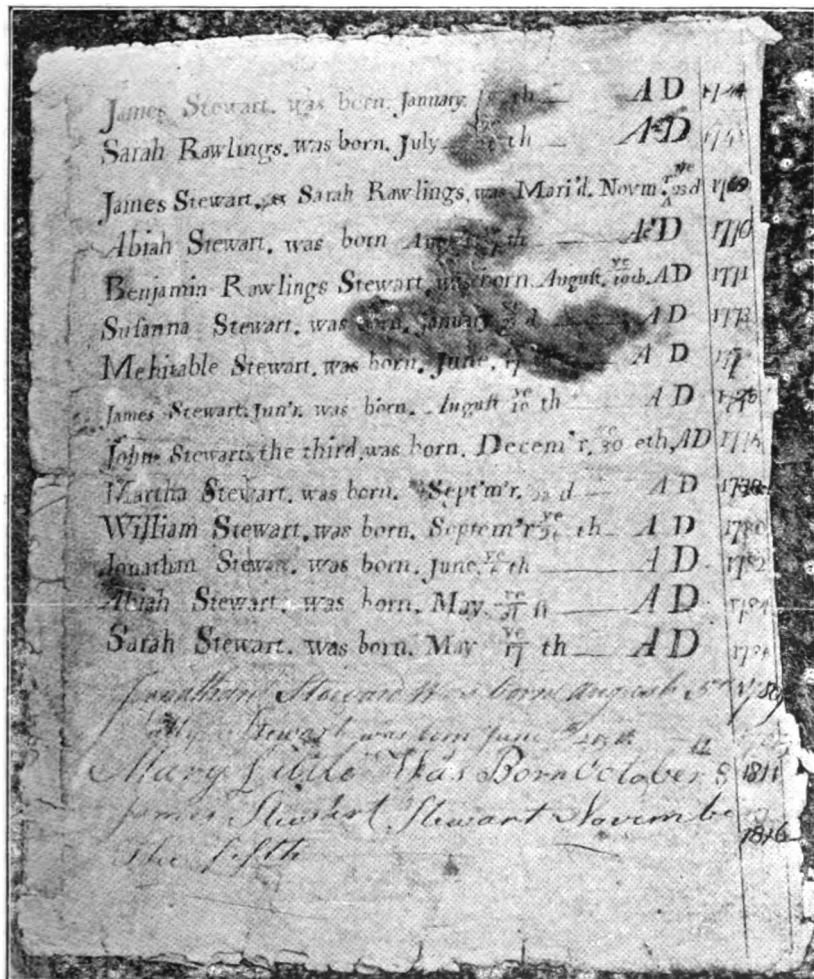 James Stewart. was born. January. th — AD
Sarah Rawlings. was born. July th — AD
James Stewart. Sarah Rawlings. was Mari'd. Novm.r ye 23d 1769
Abiah Stewart. was born th — AD 1770
Benjamin Rawlings Stewart. was born. August. ye 10th. AD 1771
Susanna Stewart. was born. January d — AD 1773
Mehitable Stewart. was born. June. 17 AD
James Stewart. Jun'r. was born. August ye 10 th AD
John Stewart the third. was born. Decem'r. ye 30 eth, AD
Martha Stewart. was born. Sept'm'r. 22 d — AD
William Stewart. was born. Septem'r ye 21 th — AD 1780
Jonathan Stewart. was born. June. ye th — AD 1782
Abiah Stewart. was born. May. ye 31 st — AD 1784
Sarah Stewart. was born. May ye 17 th — AD
Jonathan Steward Was born August 1789
Stewart was born June
Mary Little Was Born October 1811
James Stewart Stewart Novembe 1816
The fifth